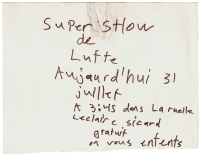 Super SHow
de
Lutte
Aujourd'hui 31
juillet
A 3:45 dans La ruelle
Leclaire sicard
gratuit
on vous entents